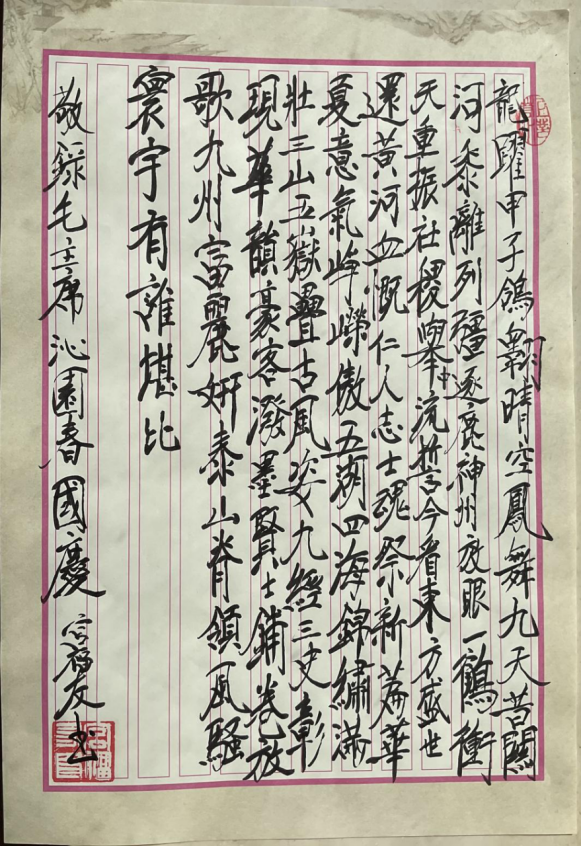 龍躍甲子鴿翱晴空鳳舞九天昔關
河黍離列疆逐鹿神州放眼一鶴衝
天重振社稷舉中流誓今看東方盛世
還黃河血溉仁人志士魂祭新篇華
夏意氣崢嶸傲五湖四海錦繡滿
壯三山五嶽疊古風姿九經三史彰
現華韻豪客潑墨賢士鋪卷放
歌九州富麗妍泰山脊領風騷
寰宇有誰堪比
敬錄毛主席沁園春國慶 宮福友書